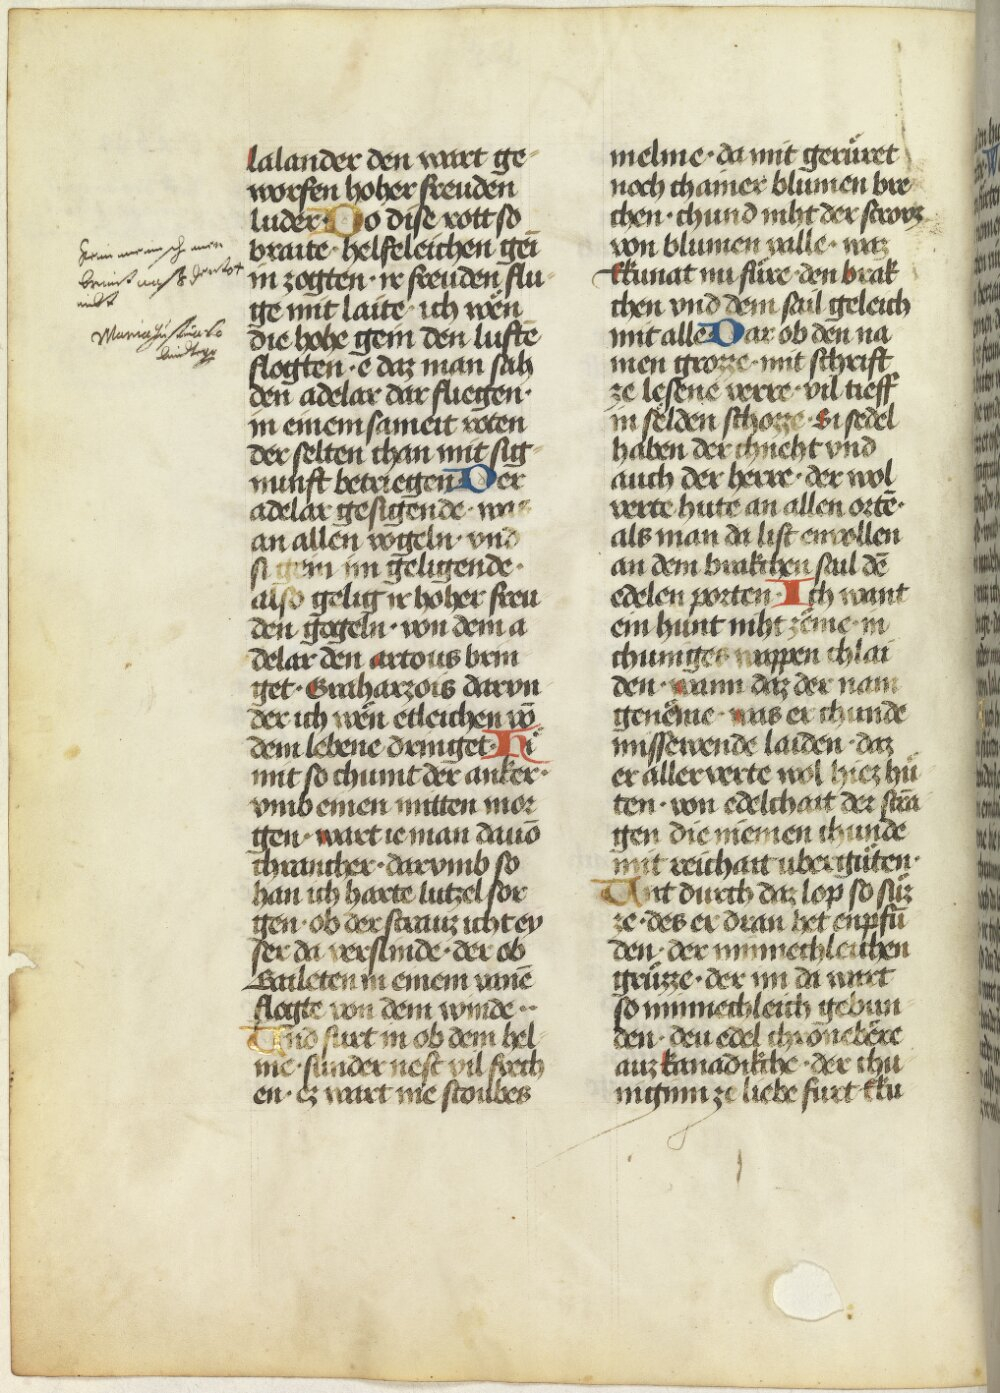 lalander den wart ge
worfen hoher freuden
luder· Do dise rott so
braite· helfeleichen gei
in zogten· ir freuden flu
ge mit laite· ich wen
die hohe gein den lufte
flogten· e daz man sah
den adelar dar fliegen·
in einem sameit roten
der selten chan mit sig
nunft betriegen Der
adelar gesigende· was
an allen vogeln· vnd
si gern im geligende·
also gelig ir hoher freu
den gogeln· von dem a
delar den artous brin
get· Graharzois darvn
der ich wen etleichen vō
dem lebene dringet· Hi
mit so chumt der anker·
vmb einen mitten mor
gen· wart ie man dauō
chrancher· darvmb so
han ich harte lutzel sor
gen· ob der strauz icht ey
ser da verslinde· der ob
Gaileten in einem vanē
flogte von dem winde··
Vnd furt in ob dem hel
me· sunder nest vil frech
en· ez wart nie stoubes
melme· da mit gerůret
noch chainer blumen bre
chen· chund niht der strovz
von blumen valle· waz
Ekunat nu fůre· den brak
chen vnd dem sail geleich
mit alle Dar ob den na
men grozze· mit schrift
ze lesene verre· vil tieff
in selden schozze· Si sedel
haben der chneht vnd
auch der herre· der wol
verte hute an allen ortē·
als man da list envollen
an dem brakchen sail dē
edelen porten· Ich want
ein hunt niht zeme· in
chuniges wappen chlai
den· wann daz der nam
geneme· was er chunde
missewende laiden· daz
er aller verte wol hiez hů
ten· von edelchait der stra
gen die niemen chunde
mit reichait vbergůten·
Vnt durch daz lop so sůz
ze· des er dran het enpfū
den· der minnechleichen
grůzze· der im da wart
so minnechleich gebun
den· deu edel chronebere
auz kanadikche· der chu
niginn ze liebe furt Eku